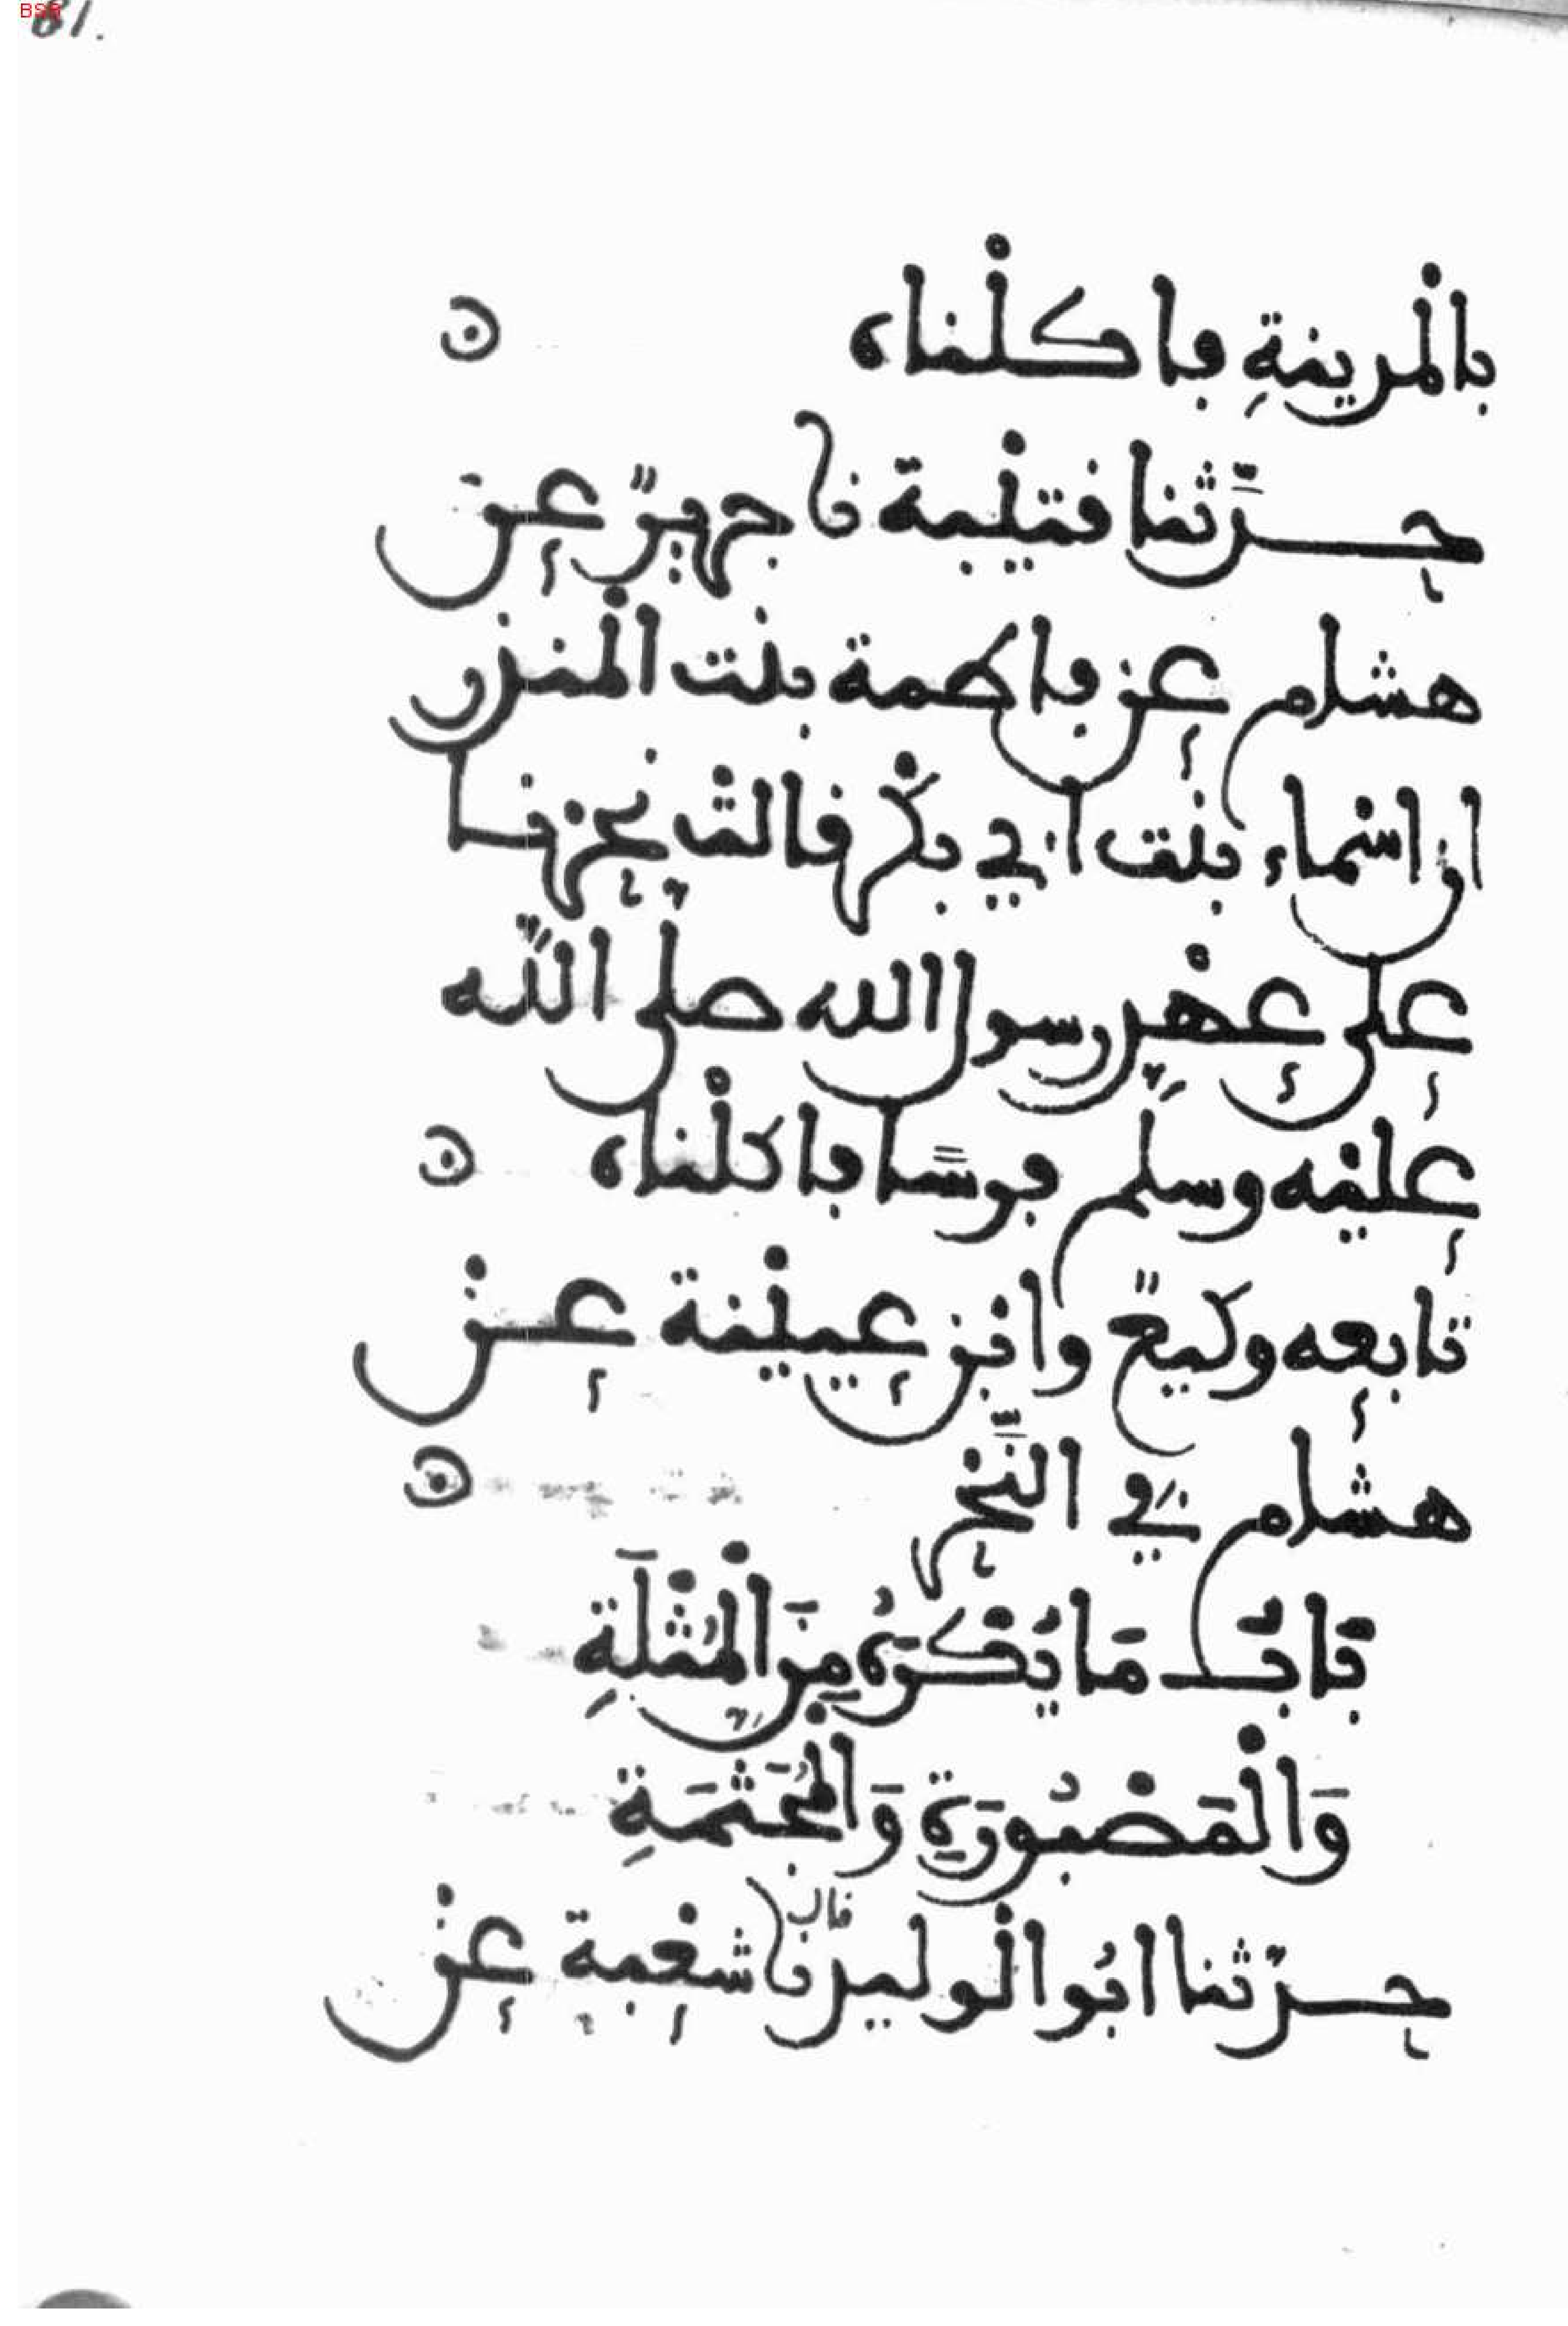 81.
BSB
بالْمدينةِ فاكلْناه
حدَّثنا قتيْبة نا جريرٌ عن
هشام عن فاطمة بنْت الْمنذر
ان اسْماء بنْت ابي بكْر قالتْ نحرْنا
على عهْدِ رسول الله صلى اللّه
عليْه وسلم فرسًا فاكلْناه
تابعه وكيعٌ وابْن عييْنة عنْ
هشام في النَّحْر
بَابُ مَا يُكْرَهُ مِنَ الْمُثْلَةِ
وَالْمَصْبُورَةِ وَالْمُجَثَّمَةِ
قال
حدّثنا ابُوا الْوليد نا شعْبة عنْ